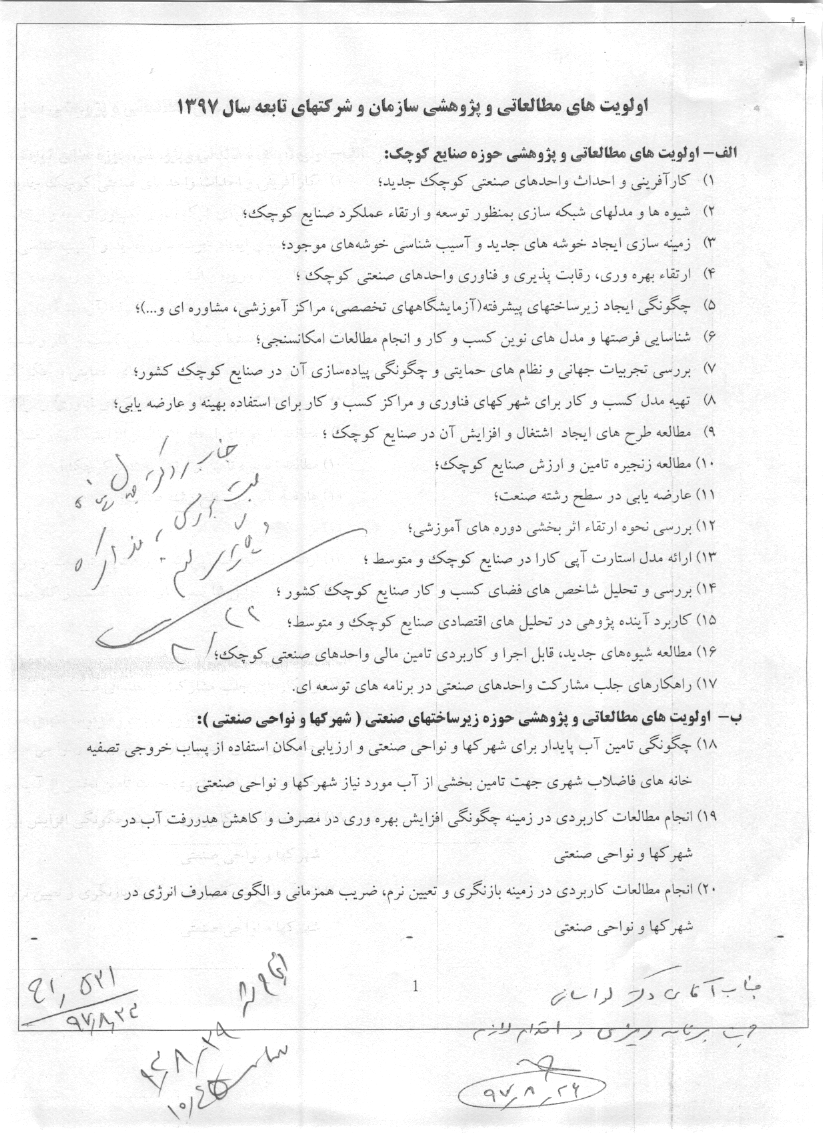 اولویت های مطالعاتی و پژوهشی سازمان و شرکتهای تابعه سال ۱۳۹۷
الف- اولویت های مطالعاتی و پژوهشی حوزه صنایع کوچک:
۱) کارآفرینی و احداث واحدهای صنعتی کوچک جدید؛
۲) شیوه ها و مدلهای شبکه سازی بمنظور توسعه و ارتقاء عملکرد صنایع کوچک؛
۳) زمینه سازی ایجاد خوشه های جدید و آسیب شناسی خوشه‌های موجود؛
۴) ارتقاء بهره وری، رقابت پذیری و فناوری واحدهای صنعتی کوچک ؛
۵) چگونگی ایجاد زیرساختهای پیشرفته(آزمایشگاههای تخصصی، مراکز آموزشی، مشاوره ای و...)؛
۶) شناسایی فرصتها و مدل های نوین کسب و کار و انجام مطالعات امکانسنجی؛
۷) بررسی تجربیات جهانی و نظام های حمایتی و چگونگی پیاده‌سازی آن در صنایع کوچک کشور؛
۸) تهیه مدل کسب و کار برای شهرکهای فناوری و مراکز کسب و کار برای استفاده بهینه و عارضه یابی؛
۹) مطالعه طرح های ایجاد اشتغال و افزایش آن در صنایع کوچک ؛
۱۰) مطالعه زنجیره تامین و ارزش صنایع کوچک؛
۱۱) عارضه یابی در سطح رشته صنعت؛
۱۲) بررسی نحوه ارتقاء اثر بخشی دوره های آموزشی؛
۱۳) ارائه مدل استارت آپی کارا در صنایع کوچک و متوسط ؛
۱۴) بررسی و تحلیل شاخص های فضای کسب و کار صنایع کوچک کشور ؛
۱۵) کاربرد آینده پژوهی در تحلیل های اقتصادی صنایع کوچک و متوسط؛
۱۶) مطالعه شیوه‌های جدید، قابل اجرا و کاربردی تامین مالی واحدهای صنعتی کوچک؛
۱۷) راهکارهای جلب مشارکت واحدهای صنعتی در برنامه های توسعه ای.
ب- اولویت های مطالعاتی و پژوهشی حوزه زیرساختهای صنعتی ( شهرکها و نواحی صنعتی ):
۱۸) چگونگی تامین آب پایدار برای شهرکها و نواحی صنعتی و ارزیابی امکان استفاده از پساب خروجی تصفیه
خانه های فاضلاب شهری جهت تامین بخشی از آب مورد نیاز شهرکها و نواحی صنعتی
۱۹) انجام مطالعات کاربردی در زمینه چگونگی افزایش بهره وری در مصرف و کاهش هدررفت آب در
شهرکها و نواحی صنعتی
۲۰) انجام مطالعات کاربردی در زمینه بازنگری و تعیین نرم، ضریب همزمانی و الگوی مصارف انرژی در
شهرکها و نواحی صنعتی
1
جناب آقای دکتر
جهت برنامه ریزی و اقدام لازم
۹۷٫۸٫۲۶
انجام شد